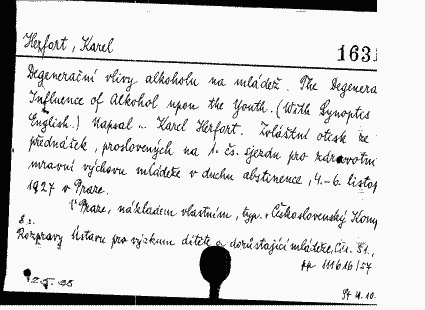 Herfort, Karel
1631
Degenerační vlivy alkoholu na mládež. The Degenera
Influence of Alkohol upon the Youth. (With Synoptes
English.) Napsal .. Karel Herfort. Zvláštní otisk ze
přednášek, proslovených na 1. čs. sjezdu pro zdravotní
mravní výchovu mládeže v duchu abstinence, 4.-6. listop
1927 v Praze.
V Praze, nákladem vlastním, typ. Československý Kom
8°.
Rozpravy Ústavu pro výzkum dítěte a dorůstající mládeže, Čís. 81.,
pp 111616/57